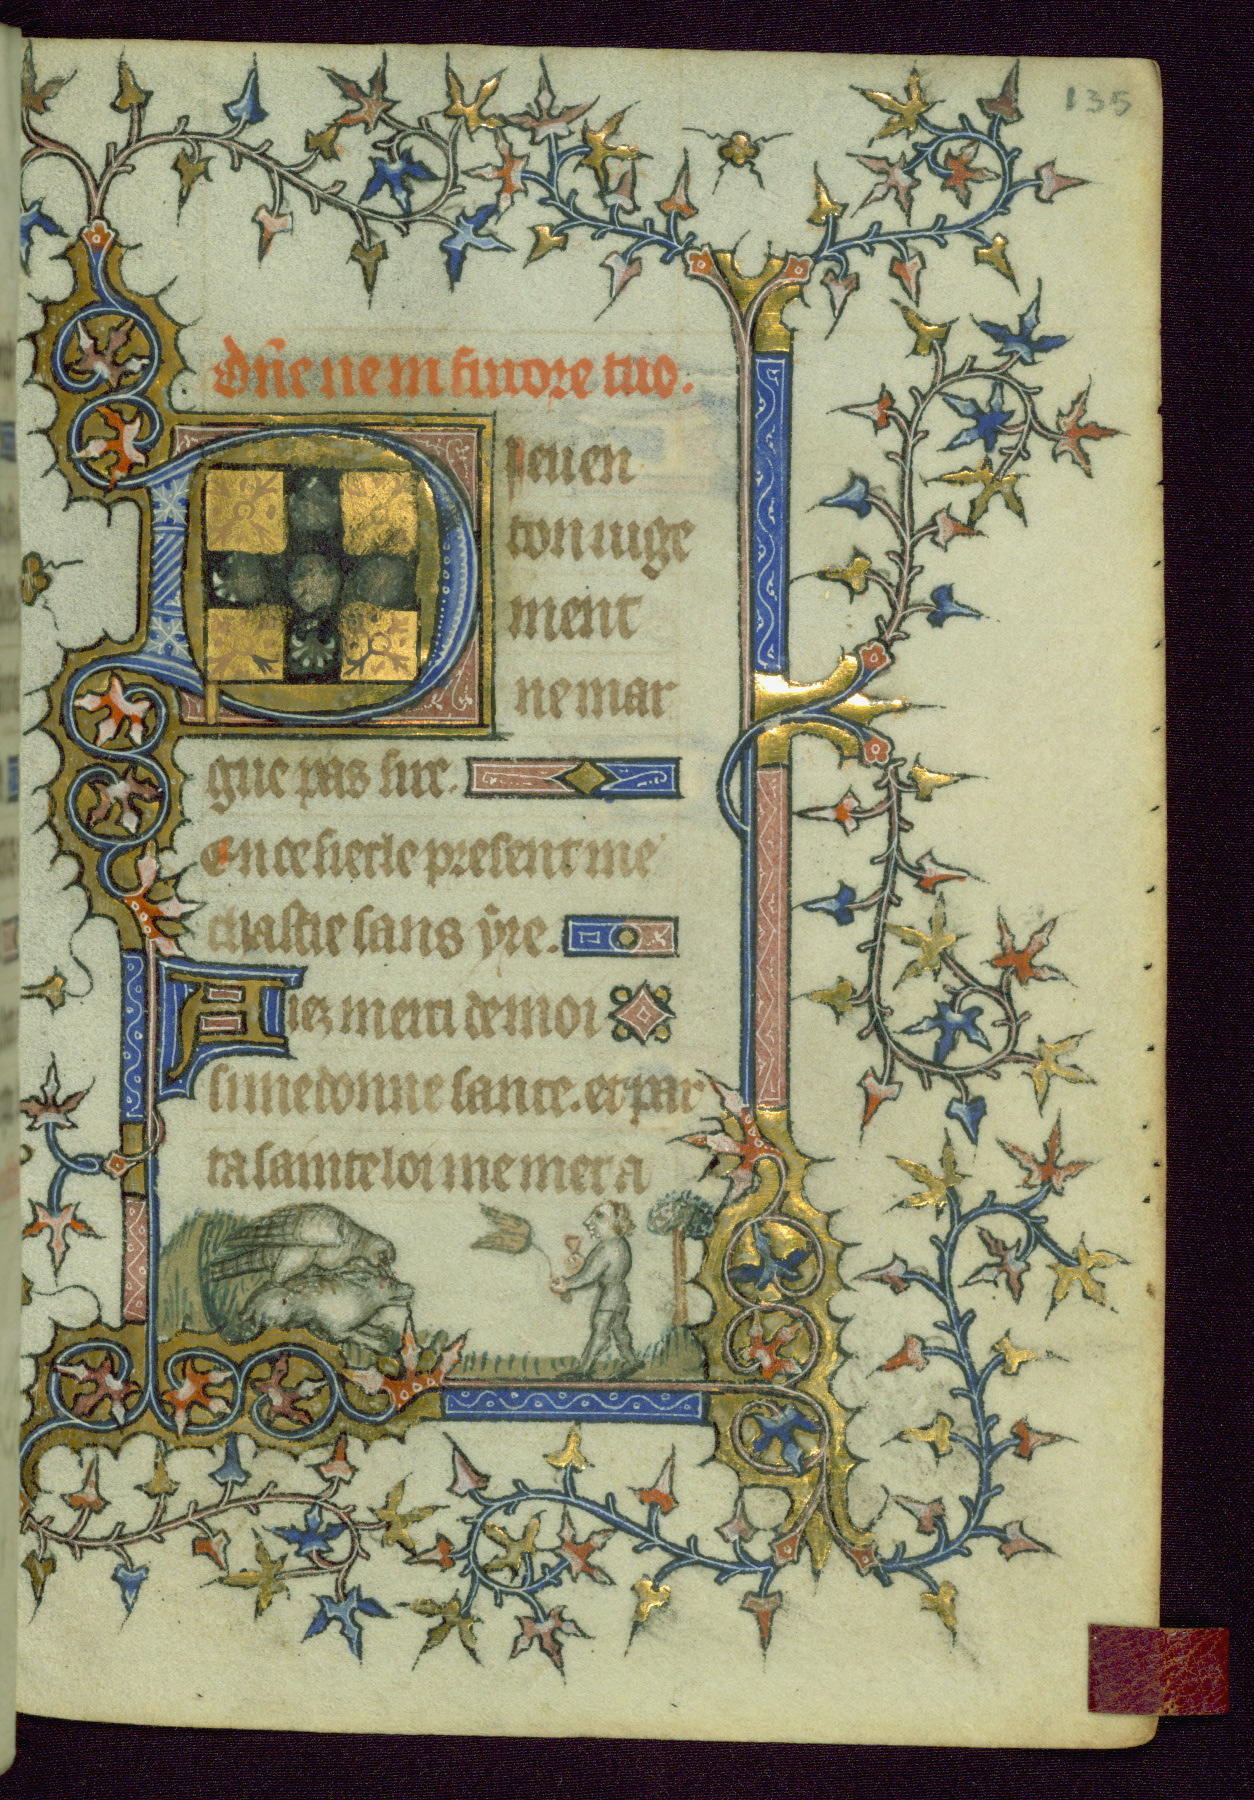 135
Dñe ne in furore tuo.
Dieu en
ton iuge
ment
ne m ar
gue pas sire.
En ce siecle present me
chastie sans yre.
Aiez merci de moi
si me donne sante. et par
ta sainte loi me met a